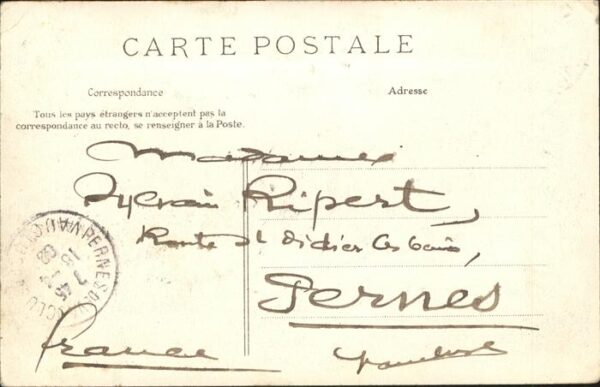 CARTE POSTALE
Correspondance
Adresse
Tous les pays étrangers n'acceptent pas la
correspondance au recto, se renseigner à la Poste.
Madame
Sylvain Ripert,
Route St Didier les bains,
Pernes
France
Vaucluse
PERNES
VAUCLUSE